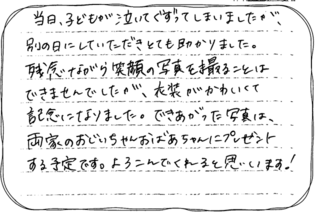 当日、子どもが泣いてぐずってしまいましたが、
別の日にしていただきとても助かりました。
残念ながら笑顔の写真を撮ることは
できませんでしたが、衣装がかわいくて
記念になりました。できあがった写真は、
両家のおじいちゃんおばあちゃんにプレゼント
する予定です。よろこんでくれると思います!